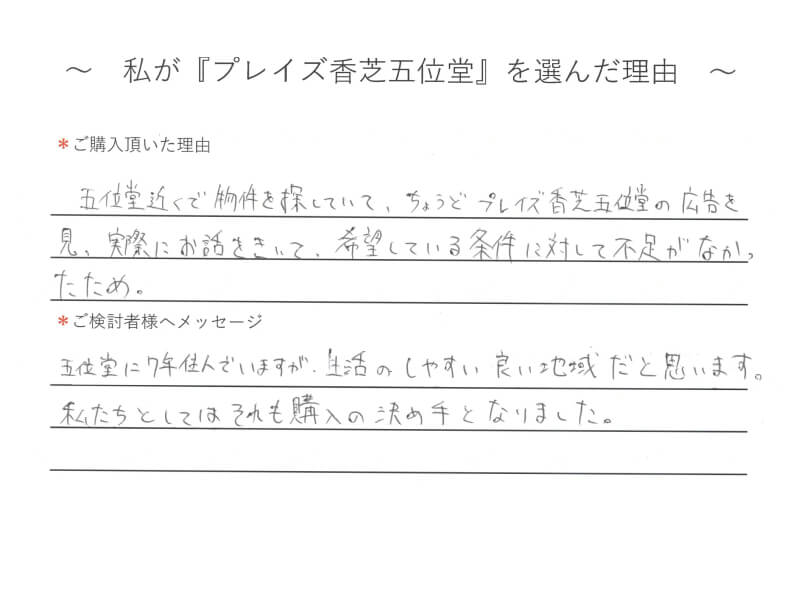 ～ 私が『プレイズ香芝五位堂』を選んだ理由 ～
*ご購入頂いた理由
五位堂近くで物件を探していて、ちょうどプレイズ香芝五位堂の広告を
見、実際にお話をきいて、希望している条件に対して不足がなかっ
たため。
*ご検討者様へメッセージ
五位堂に7年住んでいますが、生活のしやすい良い地域だと思います。
私たちとしてはそれも購入の決め手となりました。